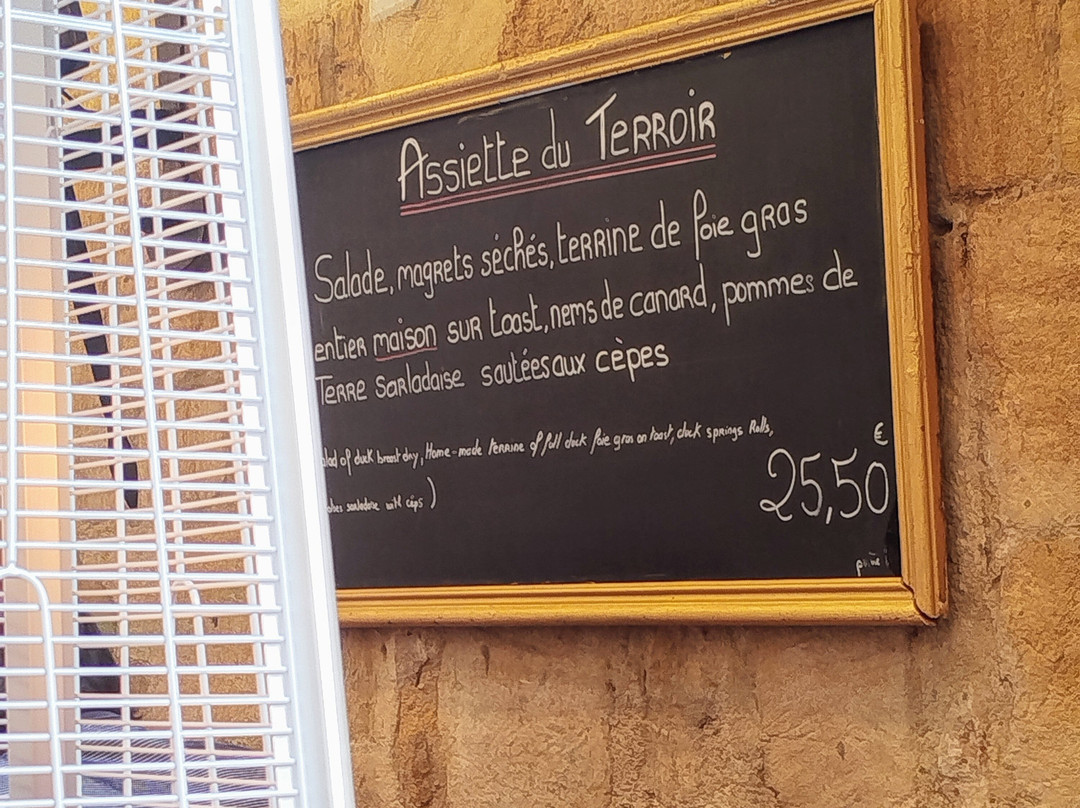 Assiette du Terroir
Salade, magrets séchés, terrine de foie gras
entier maison sur toast, nems de canard, pommes de
Terre Sarladaise sautées aux cèpes
of duck breast dry, Home-made terrine of full duck foie gras on toast, duck springs Rolls,
sarladaise with cèps)
€
25,50